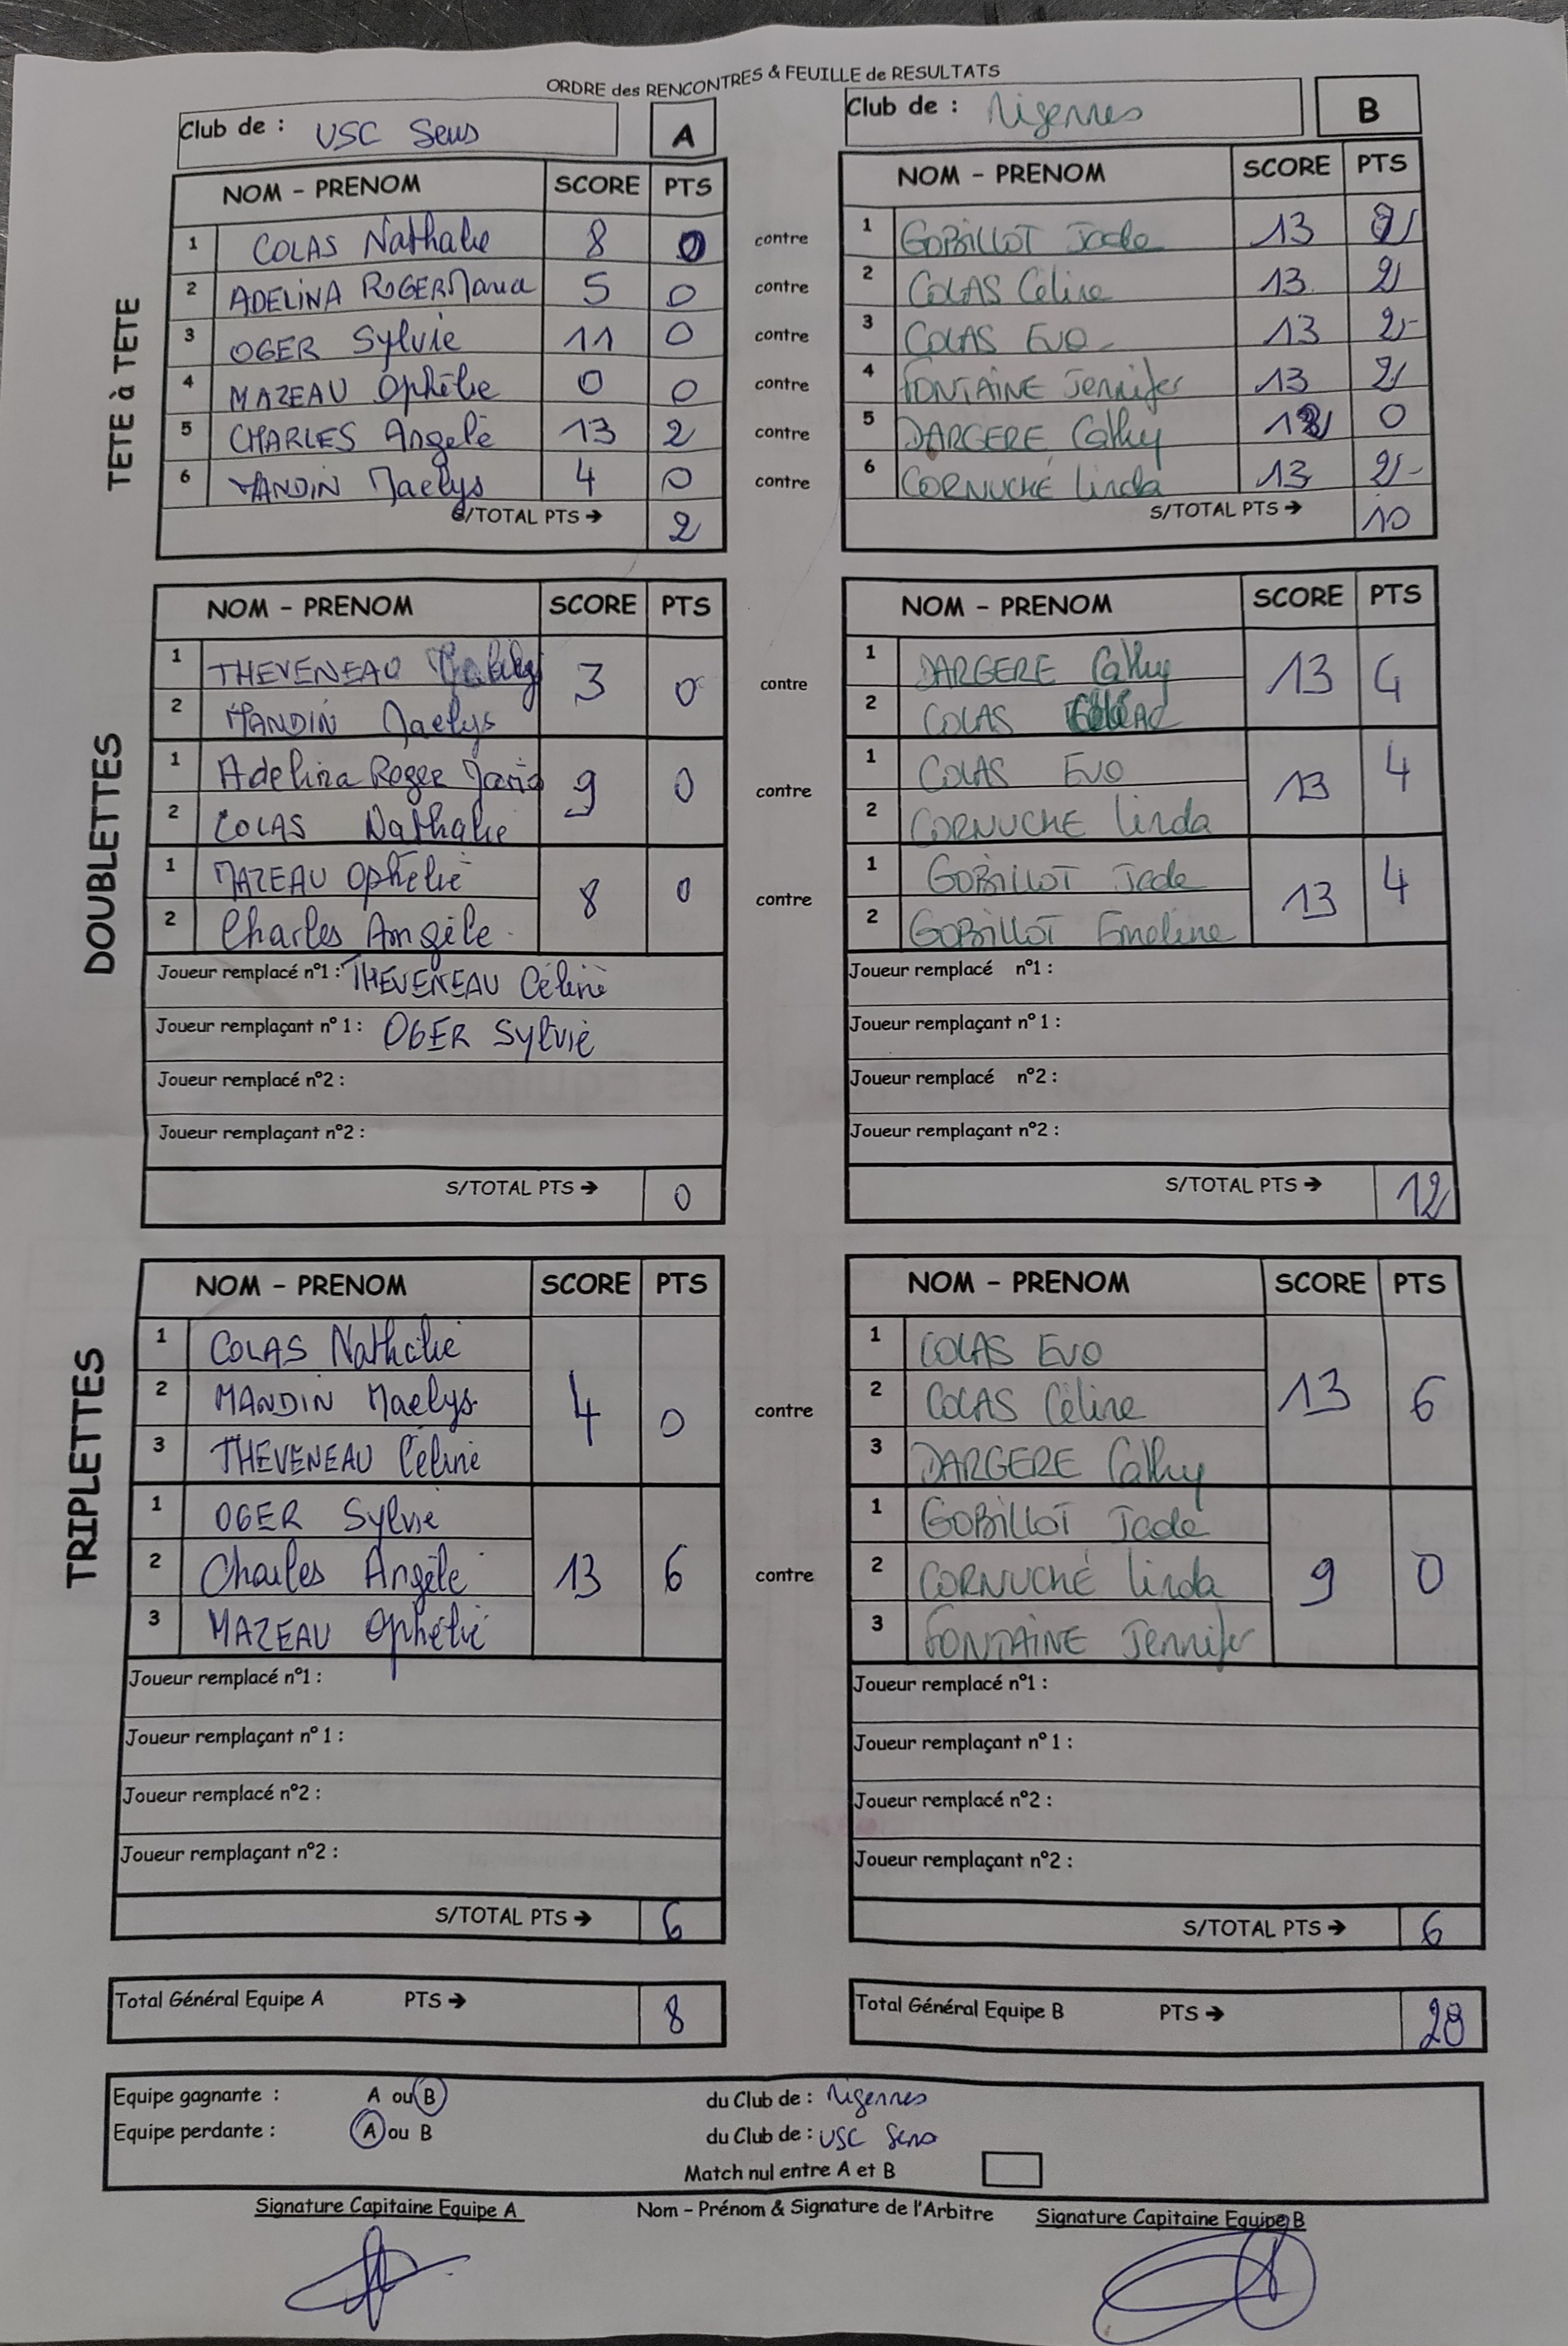 ORDRE des RENCONTRES & FEUILLE de RESULTATS
Club de : USC Sens A
Club de : Migennes B
TETE à TETE
NOM - PRENOM SCORE PTS NOM - PRENOM SCORE PTS
1 COLAS Nathalie 8 0 contre 1 GOBILLOT Jade 13 2
2 ADELINA ROGER Maria 5 0 contre 2 COLAS Céline 13 2
3 OGER Sylvie 11 0 contre 3 COLAS Eva 13 2
4 MAZEAU Ophélie 0 0 contre 4 FONTAINE Jennifer 13 2
5 CHARLES Angèle 13 2 contre 5 DARGERE Cathy 12 0
6 MANDIN Maelys 4 0 contre 6 CORNUCHÉ Linda 13 2
S/TOTAL PTS → 2 S/TOTAL PTS → 10
DOUBLETTES
NOM - PRENOM SCORE PTS NOM - PRENOM SCORE PTS
1 THEVENEAU 3 0 contre 1 DARGERE Cathy 13 4
2 MANDIN Maelys 2 COLAS
1 Adelina Roger Maria 9 0 contre 1 COLAS Eva 13 4
2 COLAS Nathalie 2 CORNUCHE Linda
1 MAZEAU Ophélie 8 0 contre 1 GOBILLOT Jade 13 4
2 Charles Angèle 2 GOBILLOT Emeline
Joueur remplacé n°1 : THEVENEAU Céline Joueur remplacé n°1 :
Joueur remplaçant n° 1 : OGER Sylvie Joueur remplaçant n° 1 :
Joueur remplacé n°2 : Joueur remplacé n°2 :
Joueur remplaçant n°2 : Joueur remplaçant n°2 :
S/TOTAL PTS → 0 S/TOTAL PTS → 12
TRIPLETTES
NOM - PRENOM SCORE PTS NOM - PRENOM SCORE PTS
1 COLAS Nathalie 1 COLAS Eva
2 MANDIN Maelys 4 0 contre 2 COLAS Céline 13 6
3 THEVENEAU Céline 3 DARGERE Cathy
1 OGER Sylvie 1 GOBILLOT Jade
2 Charles Angèle 13 6 contre 2 CORNUCHÉ Linda 9 0
3 MAZEAU Ophélie 3 FONTAINE Jennifer
Joueur remplacé n°1 : Joueur remplacé n°1 :
Joueur remplaçant n° 1 : Joueur remplaçant n° 1 :
Joueur remplacé n°2 : Joueur remplacé n°2 :
Joueur remplaçant n°2 : Joueur remplaçant n°2 :
S/TOTAL PTS → 6 S/TOTAL PTS → 6
Total Général Equipe A PTS → 8 Total Général Equipe B PTS → 28
Equipe gagnante : A ou B du Club de : Migennes
Equipe perdante : A ou B du Club de : USC Sens
Match nul entre A et B
Signature Capitaine Equipe A Nom - Prénom & Signature de l'Arbitre Signature Capitaine Equipe B